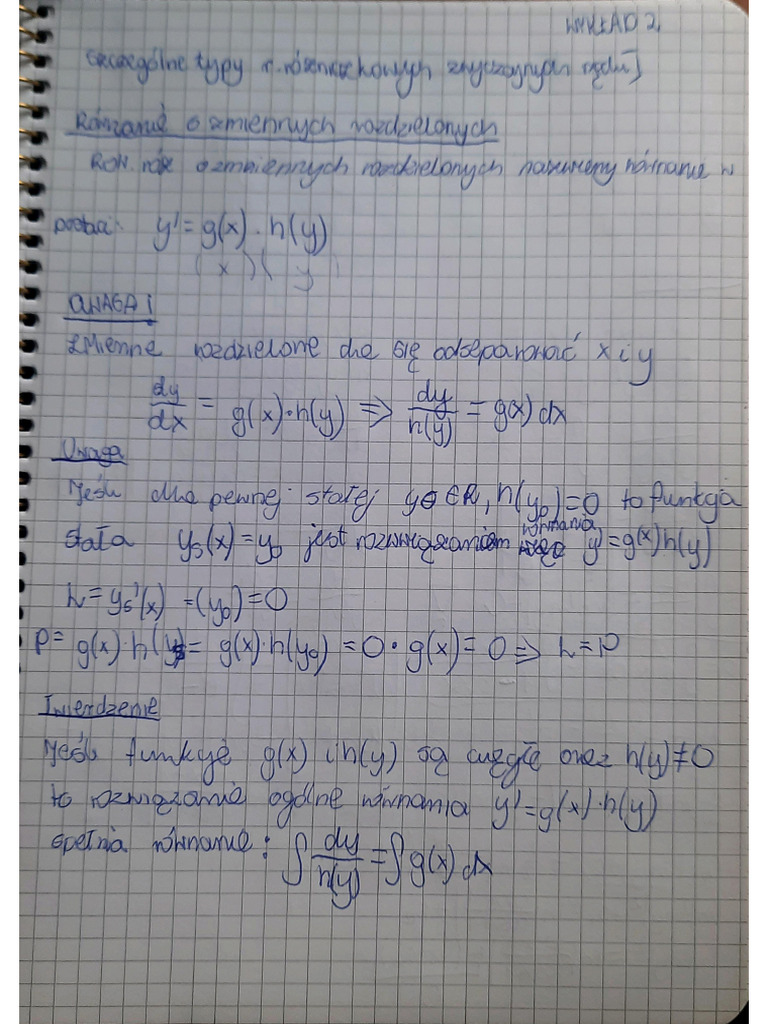 WYKŁAD 2.
szczególne typy r. różniczkowych zwyczajnych rzędu I
Równanie o zmiennych rozdzielonych
Rów. róż o zmiennych rozdzielonych nazywamy równanie w
postaci: y' = g(x) · h(y)
( x ) ( y )
UWAGA!
zmienne rozdzielone da się odseparować x i y
dy/dx = g(x)·h(y) => dy/h(y) = g(x) dx
Uwaga
Jeśli dla pewnej stałej y0 ∈ R, h(y0) = 0 to funkcja
stała ys(x) = y0 jest rozwiązaniem równania y' = g(x)h(y)
L = ys'(x) = (y0) = 0
P = g(x)·h(ys) = g(x)·h(y0) = 0 · g(x) = 0 => L = P
Twierdzenie
Jeśli funkcje g(x) i h(y) są ciągłe oraz h(y) ≠ 0
to rozwiązanie ogólne równania y' = g(x)·h(y)
spełnia równanie: ∫ dy/h(y) = ∫ g(x) dx